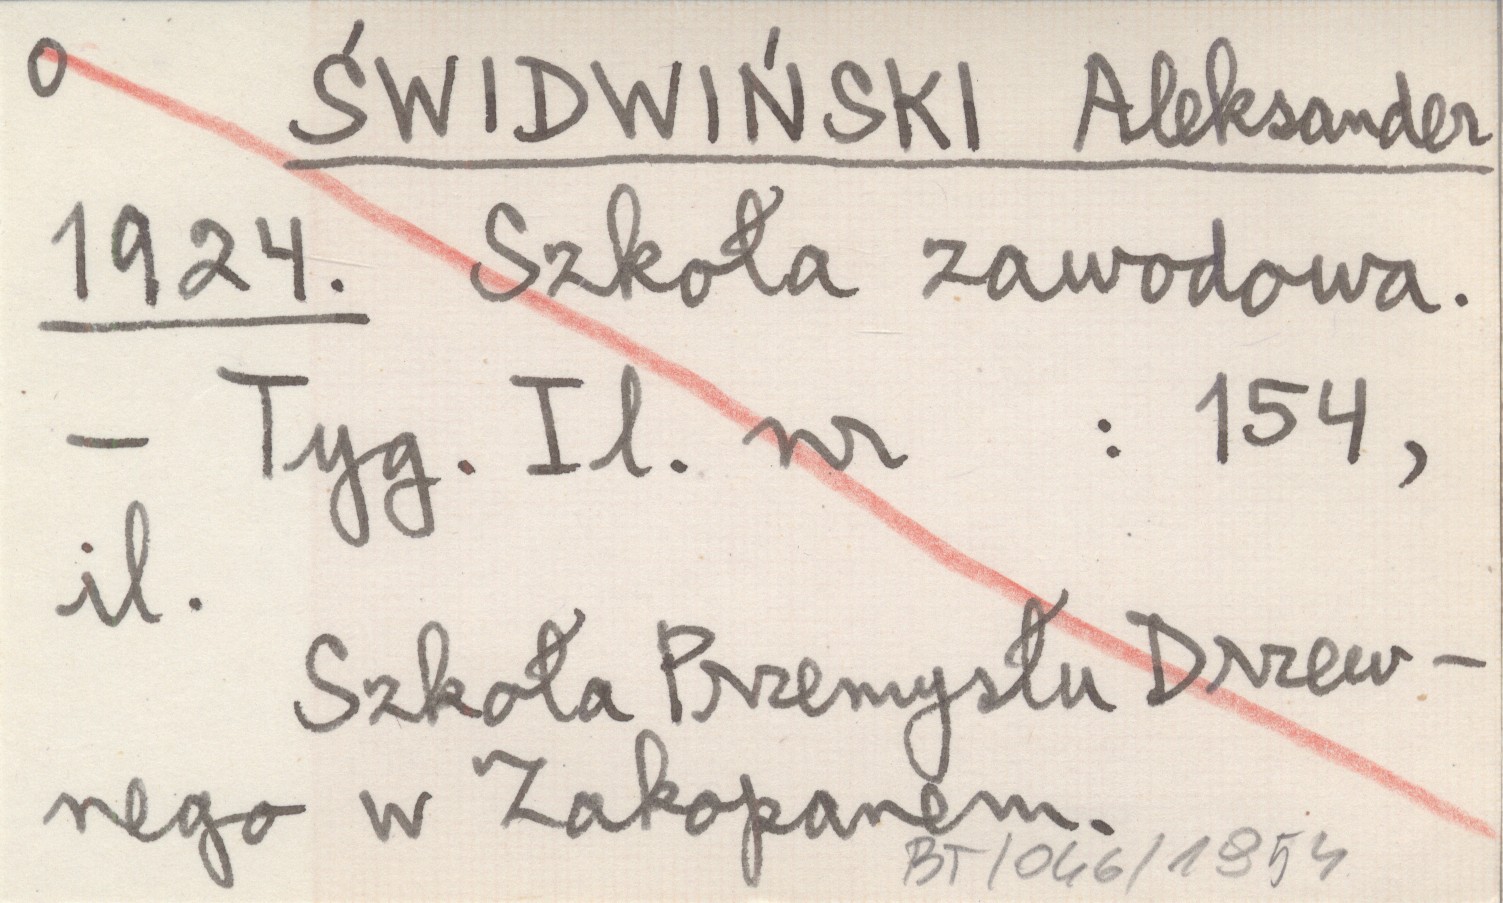 O ŚWIDWIŃSKI Aleksander
1924. Szkoła zawodowa.
– Tyg. Il. nr : 154,
il.
Szkoła Przemysłu Drzew-
nego w Zakopanem.
BT/046/1954